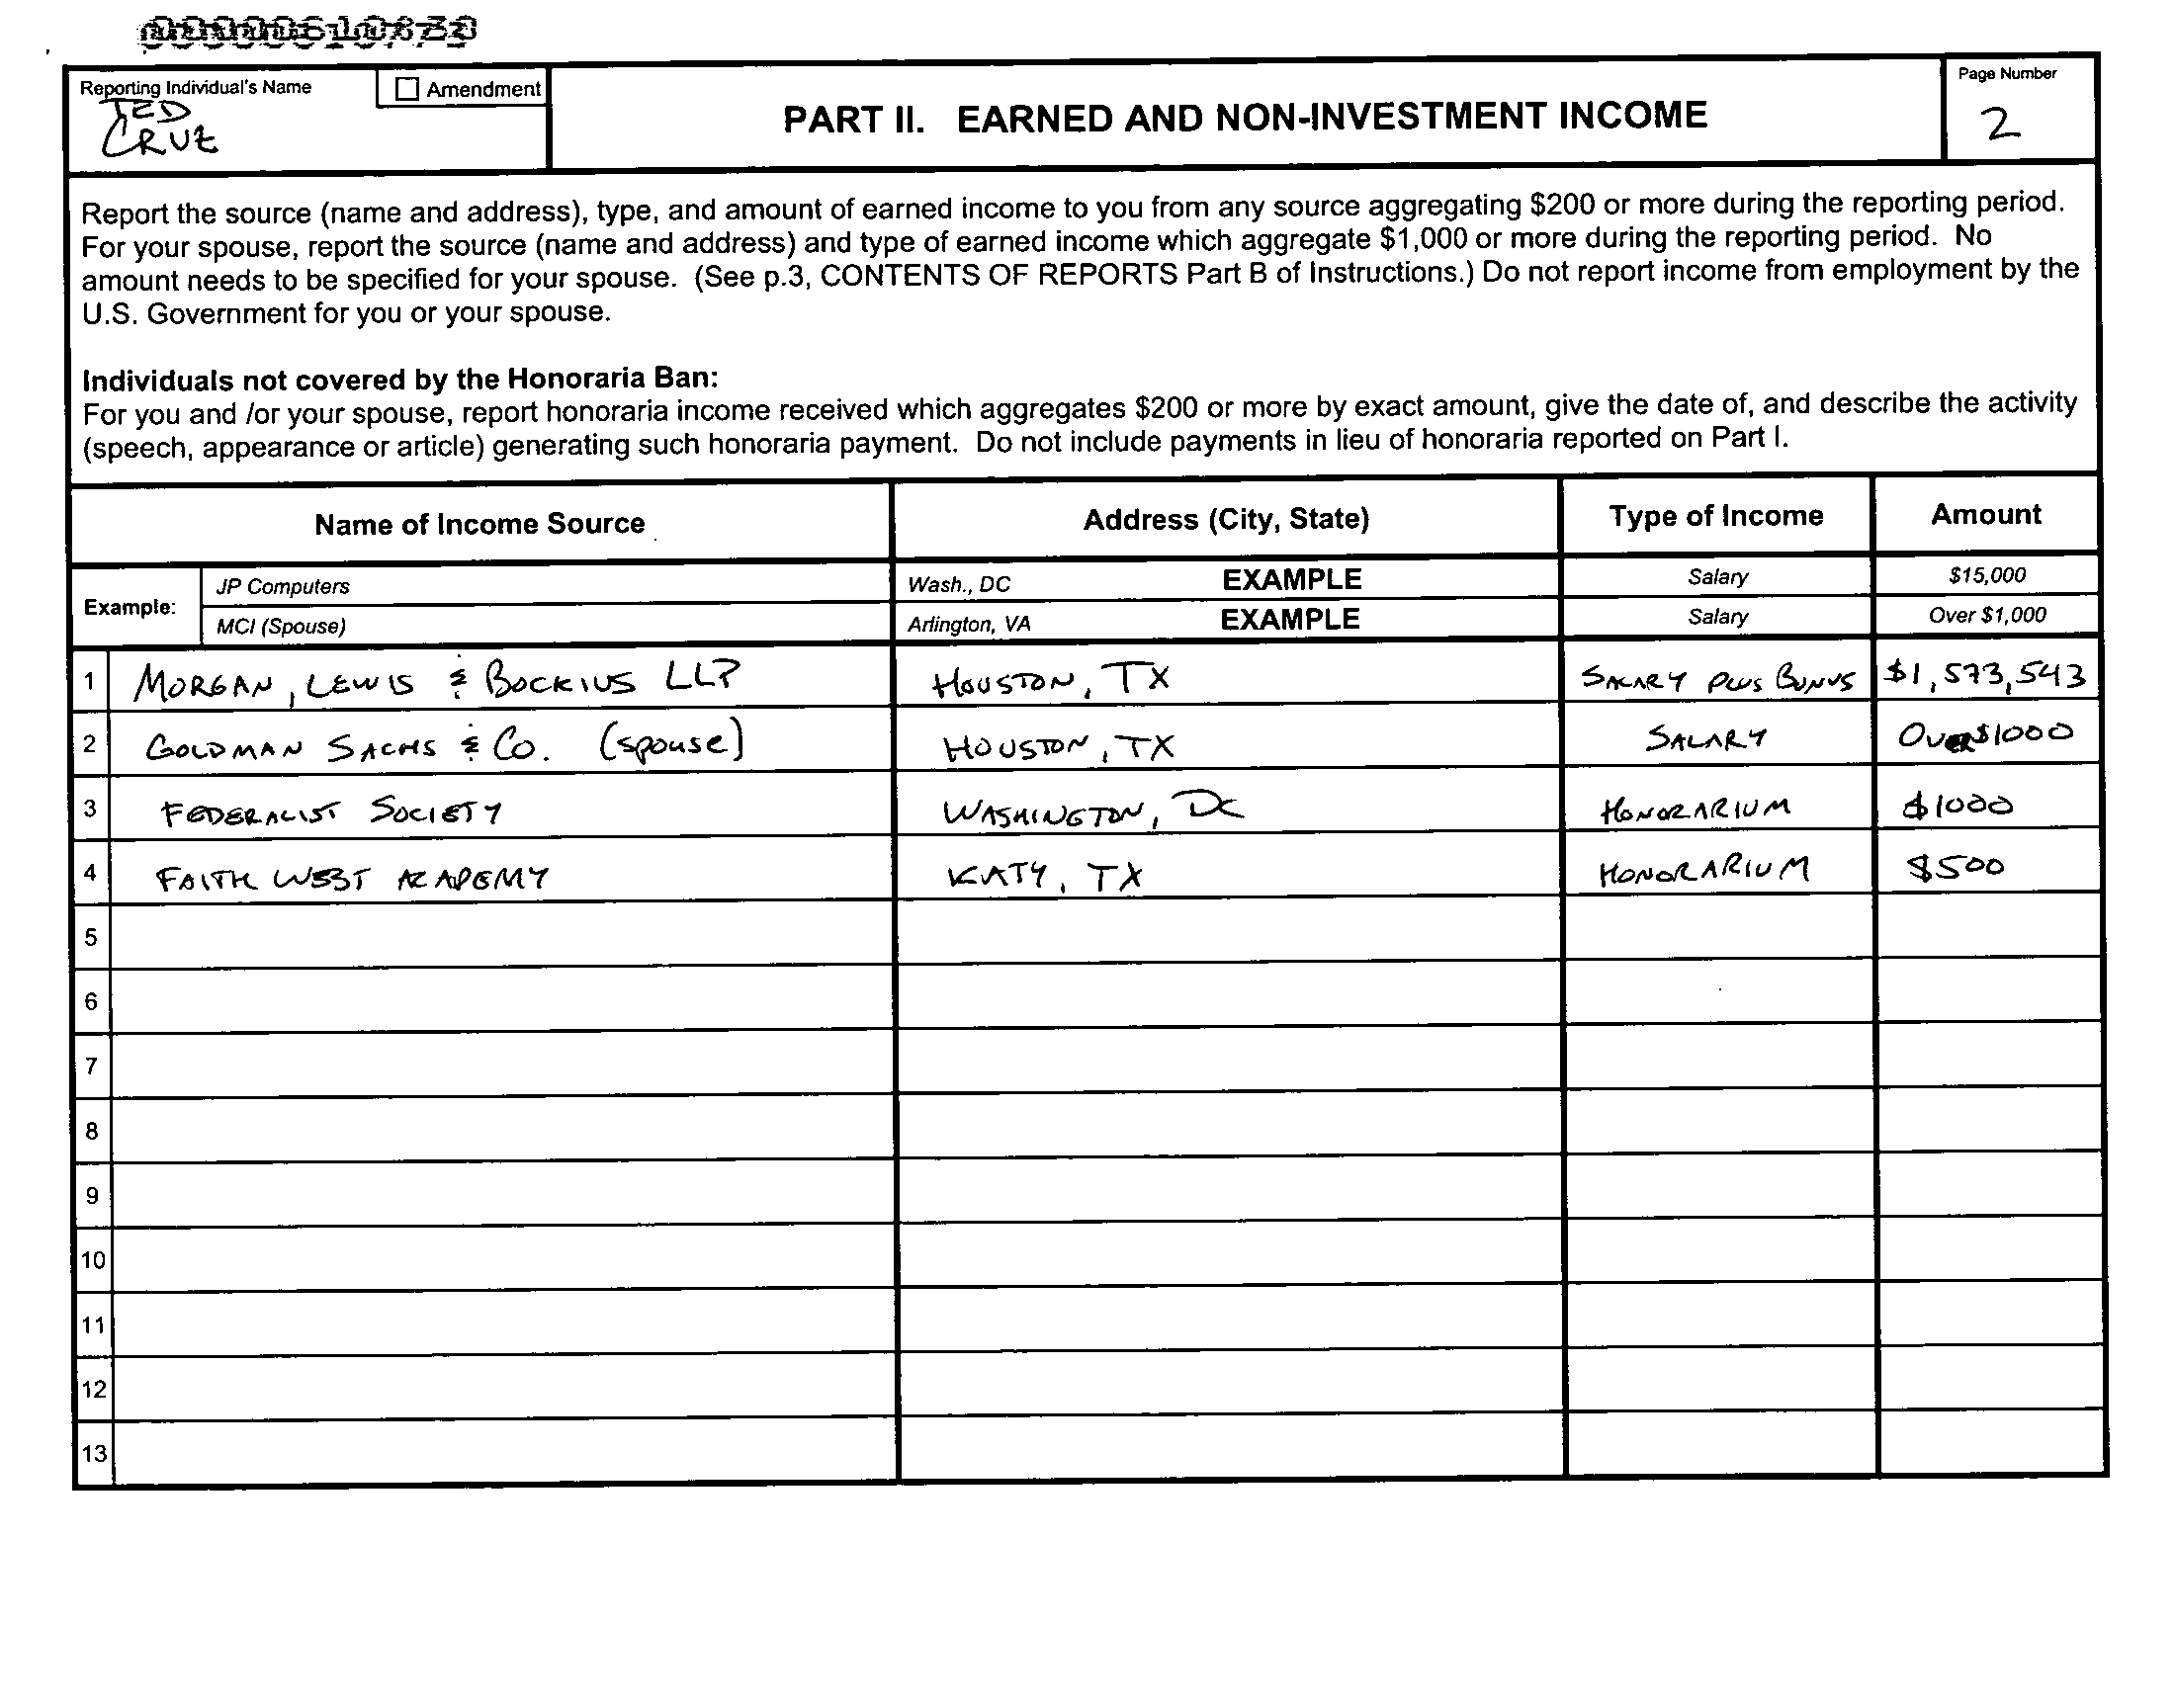 Reporting Individual's Name
Amendment
TED
CRUZ
PART II. EARNED AND NON-INVESTMENT INCOME
Page Number
2
Report the source (name and address), type, and amount of earned income to you from any source aggregating $200 or more during the reporting period.
For your spouse, report the source (name and address) and type of earned income which aggregate $1,000 or more during the reporting period. No
amount needs to be specified for your spouse. (See p.3, CONTENTS OF REPORTS Part B of Instructions.) Do not report income from employment by the
U.S. Government for you or your spouse.
Individuals not covered by the Honoraria Ban:
For you and /or your spouse, report honoraria income received which aggregates $200 or more by exact amount, give the date of, and describe the activity
(speech, appearance or article) generating such honoraria payment. Do not include payments in lieu of honoraria reported on Part I.
Name of Income Source Address (City, State) Type of Income Amount
Example:
JP Computers Wash., DC EXAMPLE Salary $15,000
MCI (Spouse) Arlington, VA EXAMPLE Salary Over $1,000
1 MORGAN, LEWIS & BOCKIUS LLP HOUSTON, TX SALARY PLUS BONUS $1,573,543
2 GOLDMAN SACHS & CO. (spouse) HOUSTON, TX SALARY OVER $1000
3 FEDERALIST SOCIETY WASHINGTON, DC HONORARIUM $1000
4 FAITH WEST ACADEMY KATY, TX HONORARIUM $500
5
6
7
8
9
10
11
12
13